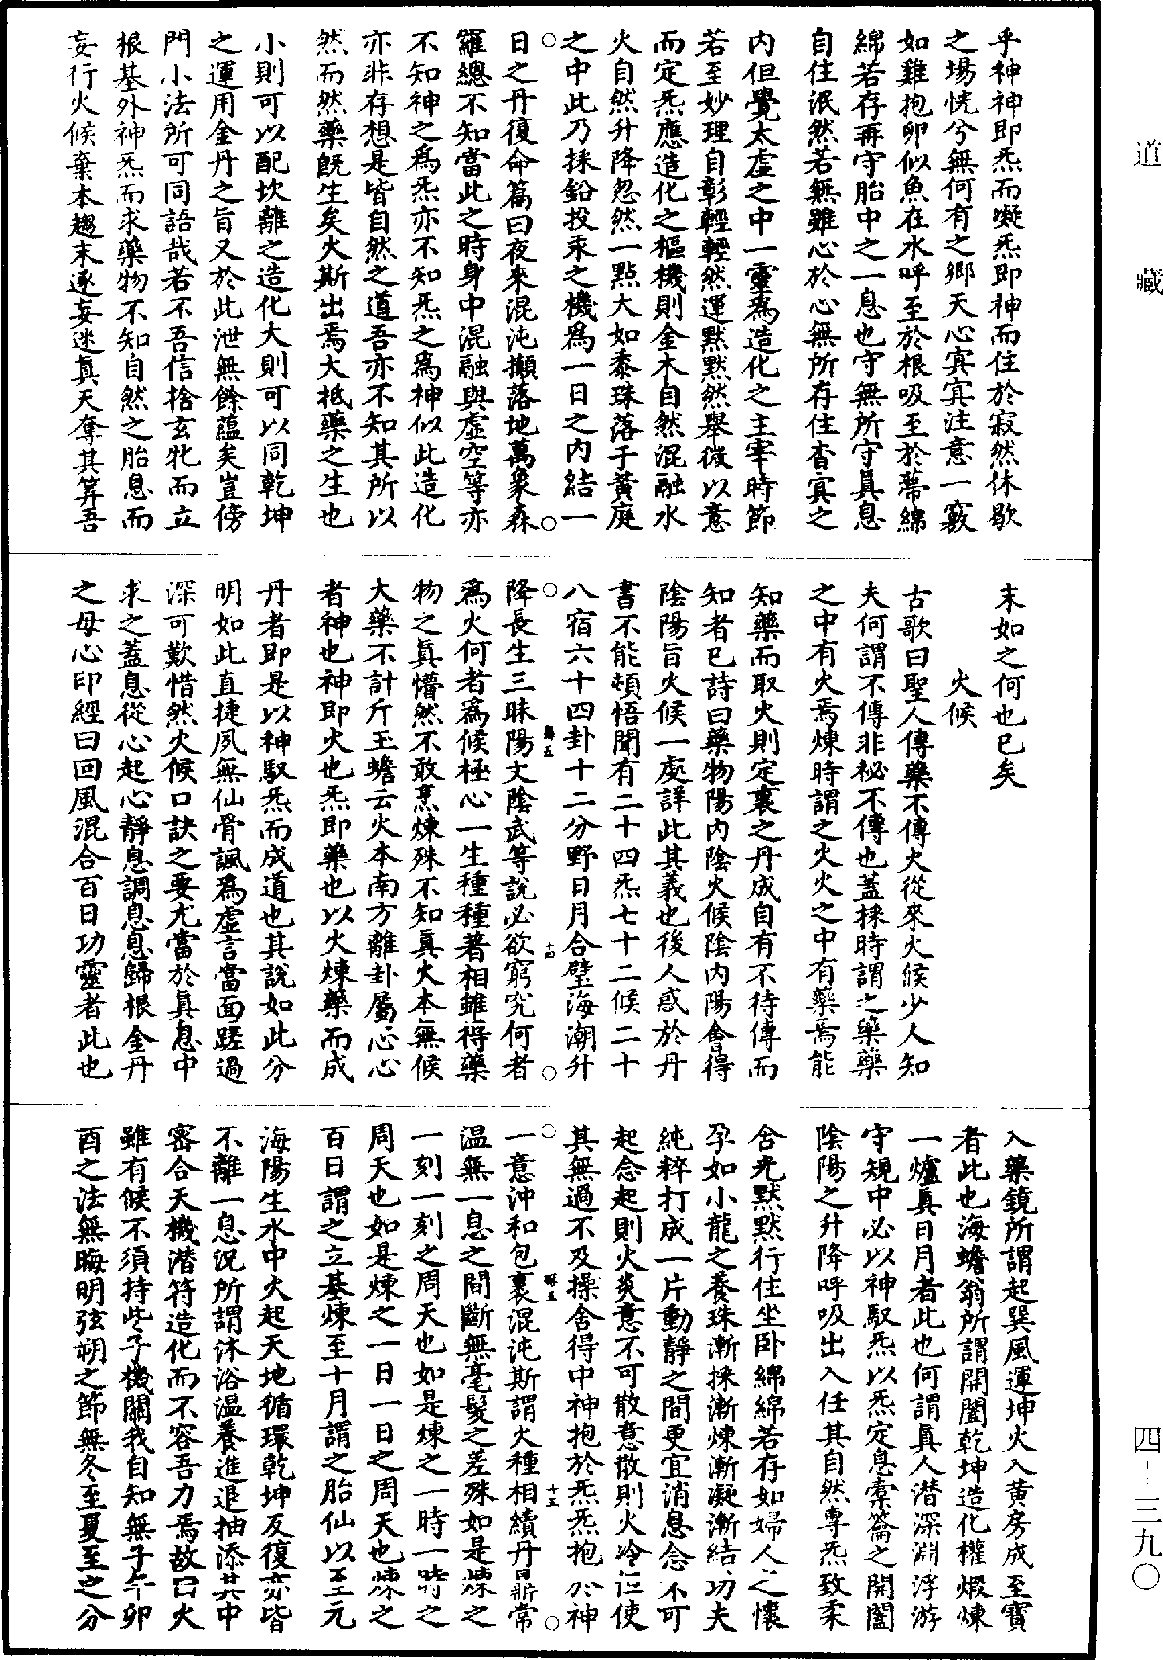 道藏
乎神神即炁而凝炁即神而住於寂然休歇
之場恍兮無何有之鄉天心冥冥注意一竅
如雞抱卵似魚在水呼至於根吸至於蒂綿
綿若存再守胎中之一息也守無所守真息
自住泯然若無雖心於心無所存住杳冥之
內但覺太虛之中一靈爲造化之主宰時節
若至妙理自彰輕輕然運默默然舉微以意
而定炁應造化之樞機則金木自然混融水
火自然升降忽然一點大如黍珠落于黃庭
之中此乃採鉛投汞之機爲一日之內結一
日之丹復命篇曰夜來混沌攧落地萬象森
羅總不知當此之時身中混融與虛空等亦
不知神之爲炁亦不知炁之爲神似此造化
亦非存想是皆自然之道吾亦不知其所以
然而然藥旣生矣火斯出焉大抵藥之生也
小則可以配坎離之造化大則可以同乾坤
之運用金丹之旨又於此泄無餘蘊矣豈傍
門小法所可同語哉若不吾信捨玄牝而立
根基外神炁而求藥物不知自然之胎息而
妄行火候棄本趨末逐妄迷真天奪其筭吾
末如之何也已矣
火候
古歌曰聖人傳藥不傳火從來火候少人知
夫何謂不傳非祕不傳也蓋採時謂之藥藥
之中有火焉煉時謂之火火之中有藥焉能
知藥而取火則定裏之丹成自有不待傳而
知者已詩曰藥物陽內陰火候陰內陽會得
陰陽旨火候一處詳此其義也後人惑於丹
書不能頓悟聞有二十四炁七十二候二十
八宿六十四卦十二分野日月合璧海潮升
降長生三昧陽文陰武等說必欲窮究何者
爲火何者爲候極心一生種種著相雖得藥
物之真懵然不敢烹煉殊不知真火本無候
大藥不計斤玉蟾云火本南方離卦屬心心
者神也神即火也炁即藥也以火煉藥而成
丹者即是以神馭炁而成道也其說如此分
明如此直捷夙無仙骨諷爲虛言當面蹉過
深可歎惜然火候口訣之要尤當於真息中
求之蓋息從心起心靜息調息息歸根金丹
之母心印經曰回風混合百日功靈者此也
入藥鏡所謂起巽風運坤火入黃房成至寶
者此也海蟾翁所謂開闔乾坤造化權煆煉
一爐真日月者此也何謂真人潜深淵浮游
守規中必以神馭炁以炁定息橐籥之開闔
陰陽之升降呼吸出入任其自然專炁致柔
含光默默行住坐卧綿綿若存如婦人之懷
孕如小龍之養珠漸採漸煉漸凝漸結功夫
純粹打成一片動靜之間更宜消息念不可
起念起則火炎意不可散意散則火冷但使
其無過不及操舍得中神抱於炁炁抱於神
一意沖和包裹混沌斯謂火種相續丹鼎常
温無一息之間斷無毫髮之差殊如是煉之
一刻一刻之周天也如是煉之一時一時之
周天也如是煉之一日一日之周天也煉之
百日謂之立基煉至十月謂之胎仙以至元
海陽生水中火起天地循環乾坤反復亦皆
不離一息況所謂沐浴溫養進退抽添其中
密合天機潜符造化而不容吾力焉故曰火
雖有候不須持些子機關我自知無子午卯
酉之法無晦明弦朔之節無冬至夏至之分
四-三九〇